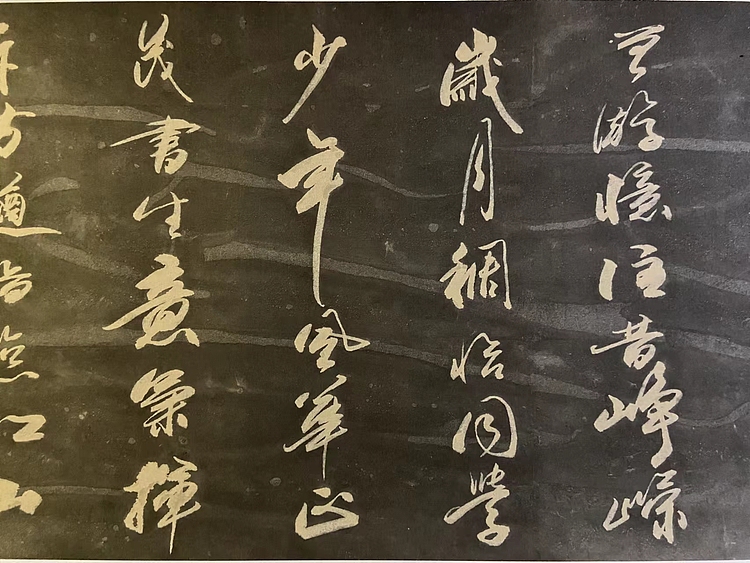 曾游憶往昔崢嶸
歲月稠恰同學
少年風華正
茂書生意氣揮
斥方遒指点江山